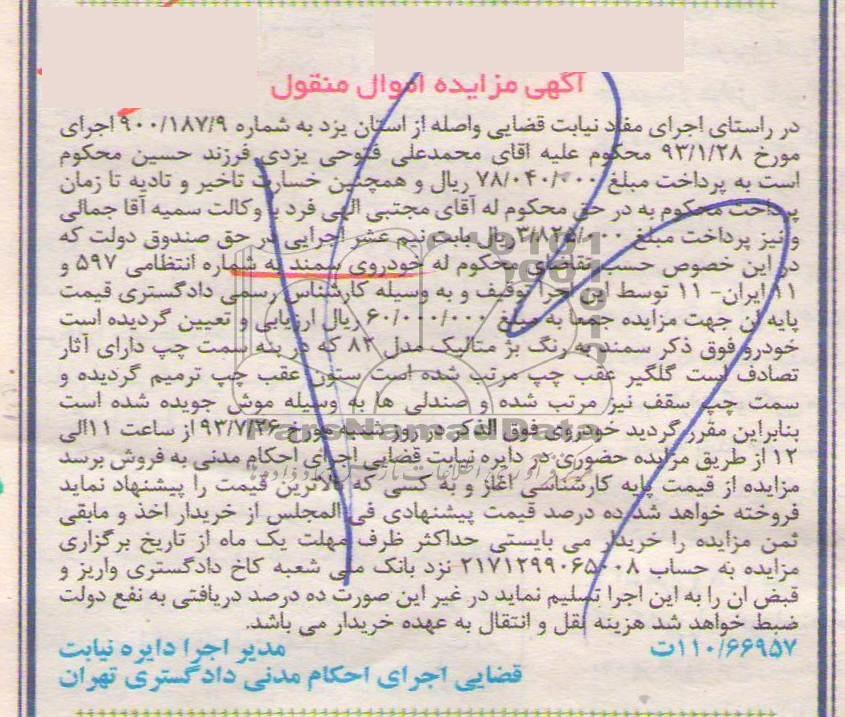 آگهی مزایده اموال منقول
در راستای اجرای مفاد نیابت قضایی واصله از استان یزد به شماره ۹۰۰/۱۸۷/۹ اجرای
مورخ ۹۳/۱/۲۸ محکوم علیه اقای محمدعلی فتوحی یزدی فرزند حسین محکوم
است به پرداخت مبلغ ۷۸/۰۴۰/۰۰۰ ریال و همچنین خسارت تاخیر و تادیه تا زمان
پرداخت محکوم به در حق محکوم له آقای مجتبی الهی فرد با وکالت سمیه آقا جمالی
و نیز پرداخت مبلغ ۳/۸۲۵/۰۰۰ ریال بابت نیم عشر اجرایی در حق صندوق دولت که
در این خصوص حسب تقاضای محکوم له خودروی سمند به شماره انتظامی ۵۹۷ و
۱۱ ایران- ۱۱ توسط این اجرا توقیف و به وسیله کارشناس رسمی دادگستری قیمت
پایه آن جهت مزایده جمعا به مبلغ ۶۰/۰۰۰/۰۰۰ ریال ارزیابی و تعیین گردیده است
خودرو فوق ذکر سمند به رنگ بژ متالیک مدل ۸۳ که در بنه سمت چپ دارای آثار
تصادف است گلگیر عقب چپ مرتب شده است ستون عقب چپ ترمیم گردیده و
سمت چپ سقف نیز مرتب شده و صندلی ها به وسیله موش جویده شده است
بنابراین مقرر گردید خودروی فوق الذکر در روز شنبه مورخ ۹۳/۷/۲۶ از ساعت ۱۱الی
۱۲ از طریق مزایده حضوری در دایره نیابت قضایی اجرای احکام مدنی به فروش برسد
مزایده از قیمت پایه کارشناسی اغاز و به کسی که بالاترین قیمت را پیشنهاد نماید
فروخته خواهد شد ده درصد قیمت پیشنهادی فی المجلس از خریدار اخذ و مابقی
ثمن مزایده را خریدار می بایستی حداکثر ظرف مهلت یک ماه از تاریخ برگزاری
مزایده به حساب ۲۱۷۱۲۹۹۰۶۵۰۰۸ نزد بانک ملی شعبه کاخ دادگستری واریز و
قبض ان را به این اجرا تسلیم نماید در غیر این صورت ده درصد دریافتی به نفع دولت
ضبط خواهد شد هزینه نقل و انتقال به عهده خریدار می باشد.
۱۱۰/۶۶۹۵۷ت
مدیر اجرا دایره نیابت
قضایی اجرای احکام مدنی دادگستری تهران
ParsNamadData